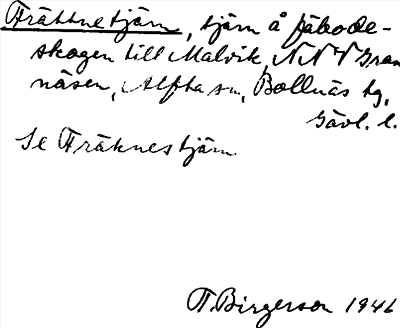 Fräknetjärn, tjärn å fäbode-
skogen till Malvik, NNV Gran
näsen, Alfta sn, Bollnäs tg,
Gävl. l.
Se Fräknestjärn
T. Birgerson 1946